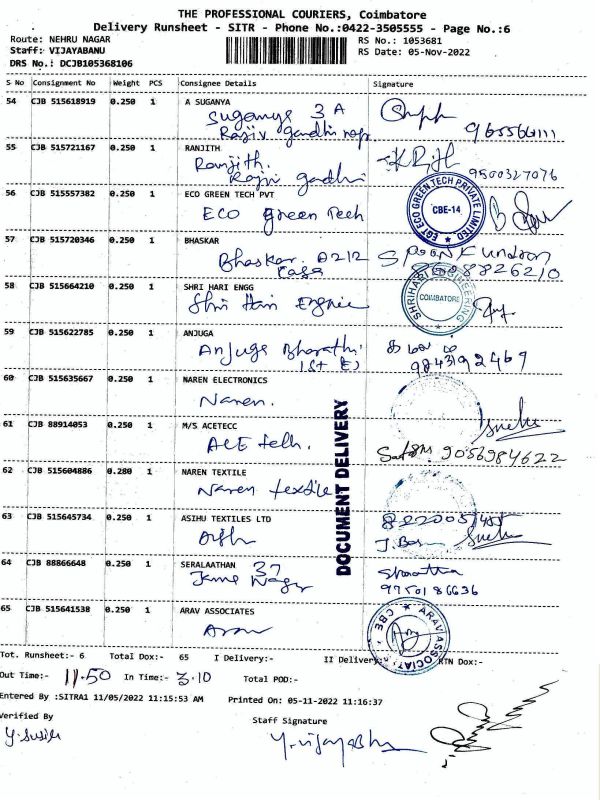 THE PROFESSIONAL COURIERS, Coimbatore
Delivery Runsheet - SITR - Phone No.:0422-3505555 - Page No.:6
Route: NEHRU NAGAR
RS No.: 1053681
Staff: VIJAYABANU
RS Date: 05-Nov-2022
DRS No.: DCJB105368106
S No Consignment No Weight PCS Consignee Details Signature
54 CJB 515618919 0.250 1 A SUGANYA
Suganya 3 A
Rajiv gandhi
55 CJB 515721167 0.250 1 RANJITH
Ranjith.
Rajiv gandhi
9500327076
56 CJB 515557382 0.250 1 ECO GREEN TECH PVT
ECO Green Tech
EGT ECO GREEN TECH PRIVATE LIMITED
CBE-14
57 CJB 515720346 0.250 1 BHASKAR
Bhaskar. A212
58 CJB 515664210 0.250 1 SHRI HARI ENGG
Shri Hari Engnee
COIMBATORE
59 CJB 515622785 0.250 1 ANJUGA
Anjuga Bharathi
9843192469
60 CJB 515635667 0.250 1 NAREN ELECTRONICS
Naren.
61 CJB 88914053 0.250 1 M/S ACETECC
ACE tech.
9056984622
62 CJB 515604886 0.280 1 NAREN TEXTILE
Naren textile
DOCUMENT DELIVERY
63 CJB 515645734 0.250 1 ASIHU TEXTILES LTD
64 CJB 88866648 0.250 1 SERALAATHAN
37
Nagar
9750186636
65 CJB 515641538 0.250 1 ARAV ASSOCIATES
Arav
ARAV ASSOCIAT
CBE
Tot. Runsheet:- 6 Total Dox:- 65 I Delivery:- II Delivery:- RTN Dox:-
Out Time:- 11.50 In Time:- 3.10 Total POD:-
Entered By :SITRA1 11/05/2022 11:15:53 AM Printed On: 05-11-2022 11:16:37
Verified By
Staff Signature
Y. Susila
Y. Vijayabhanu